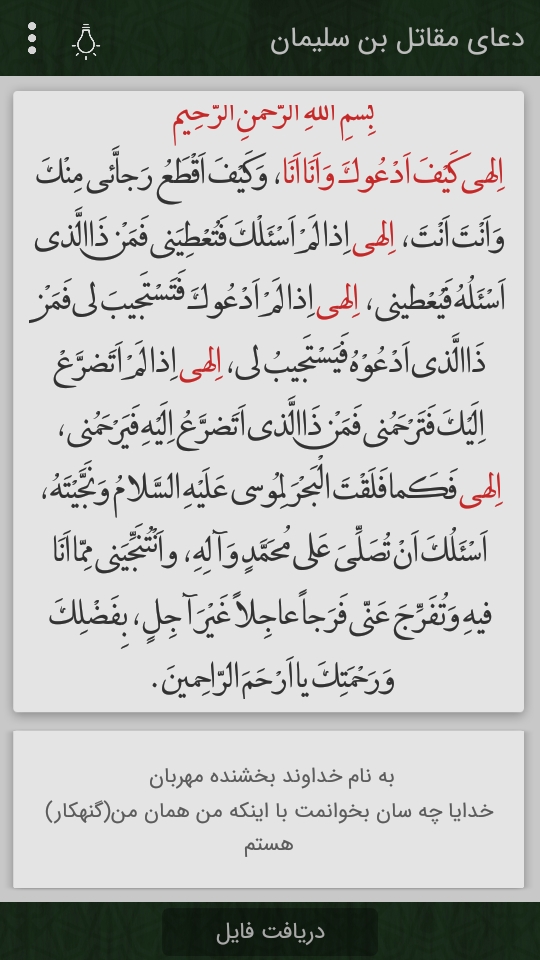 دعای مقاتل بن سلیمان
بِسمِ اللهِ الرّحمنِ الرّحیمِ
اِلهی کَیْفَ اَدْعُوکَ وَ اَنَا اَنَا، وَکَیْفَ اَقْطَعُ رَجآئی مِنْکَ
وَاَنْتَ اَنْتَ، اِلهی اِذا لَمْ اَسْئَلْکَ فَتُعْطِیَنی فَمَنْ ذَا الَّذی
اَسْئَلُهُ فَیُعْطینی، اِلهی اِذا لَمْ اَدْعُوکَ فَتَسْتَجیبَ لی فَمَنْ
ذَا الَّذی اَدْعُوْهُ فَیَسْتَجیبُ لی، اِلهی اِذا لَمْ اَتَضرَّعْ
اِلَیْکَ فَتَرْحَمُنی فَمَنْ ذَا الَّذی اَتَضرَّعُ اِلَیْهِ فَیَرْحَمُنی،
اِلهی فَکَما فَلَقْتَ الْبَحْرَ لِمُوسی عَلَیْهِ السَّلامُ وَنَجَّیْتَهُ،
اَسْئَلُکَ اَنْ تُصَلِّیَ عَلی مُحَمَّدٍ وَ آلِهِ، واَنْتُنَجِّیَنی مِمّا اَنَا
فیهِ وَتُفَرِّجَ عَنّی فَرَجاً عاجِلاً غَیْرَ آجِلٍ، بِفَضْلِکَ
وَرَحْمَتِکَ یا اَرْحَمَ الرّاحِمینَ.
به نام خداوند بخشنده مهربان
خدایا چه سان بخوانمت با اینکه من همان من(گنهکار)
هستم
دریافت فایل